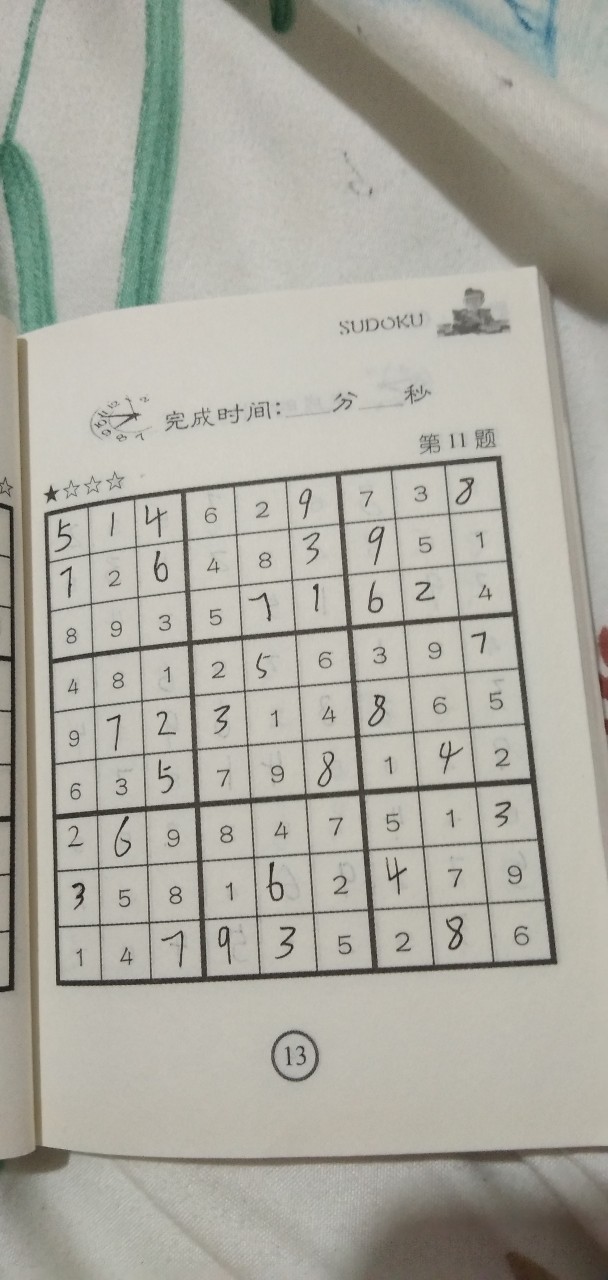 SUDOKU
完成时间:___分___秒
第11题
★☆☆☆
5 1 4 6 2 9 7 3 8
7 2 6 4 8 3 9 5 1
8 9 3 5 7 1 6 2 4
4 8 1 2 5 6 3 9 7
9 7 2 3 1 4 8 6 5
6 3 5 7 9 8 1 4 2
2 6 9 8 4 7 5 1 3
3 5 8 1 6 2 4 7 9
1 4 7 9 3 5 2 8 6
13